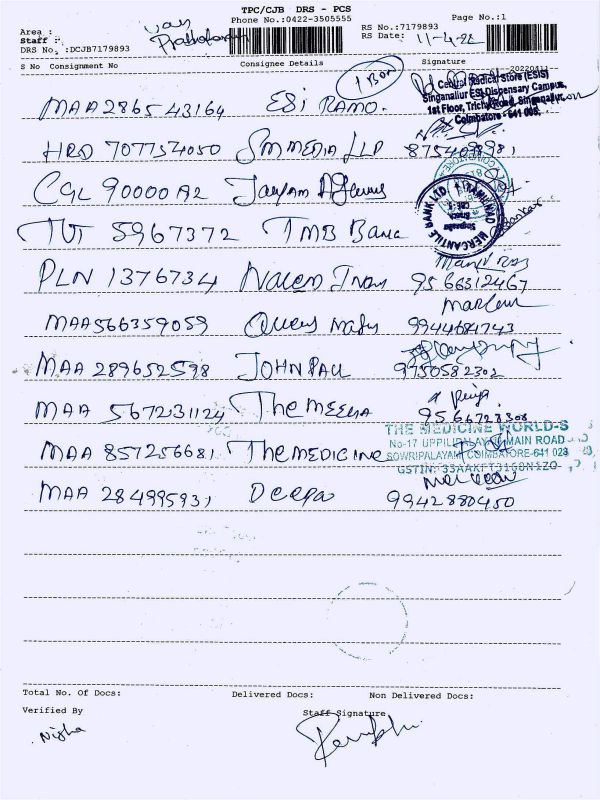 TPC/CJB DRS - PCS
Phone No.:0422-3505555
Page No.:1
Area :
Staff :
DRS No. :DCJB7179893
RS No.:7179893
RS Date: 11-4-22
S No Consignment No Consignee Details Signature
20220411
1 Box
MAA 286543164 ESI RAMO.
Central Medical Store (ESIS)
Singanallur ESI Dispensary Campus,
1st Floor, Trichy Road, Singanallur,
Coimbatore - 641 005.
HRD 707754050 SM MEDIA LLP
CGL 90000A2
TUT 5967372 TMB Bank
TAMILNAD MERCANTILE BANK LTD
PLN 1376734 9566312467
MAA566359059 9944684743
MAA 289652598 JOHN PAUL 9750582302
MAA 567231124 The MEENA 9566728308
THE MEDICINE WORLD-S
No-17 UPPILIPALAYAM MAIN ROAD
SOWRIPALAYAM, COIMBATORE-641 028
MAA 857256681 The MEDICINE
MAA 284995931 Deepa 9942880450
Total No. Of Docs: Delivered Docs: Non Delivered Docs:
Verified By Staff Signature
Nisha